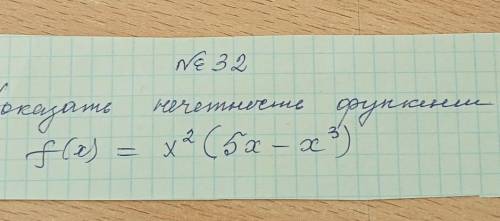 № 32
Показать нечетность функции
f(x) = x² (5x - x³)